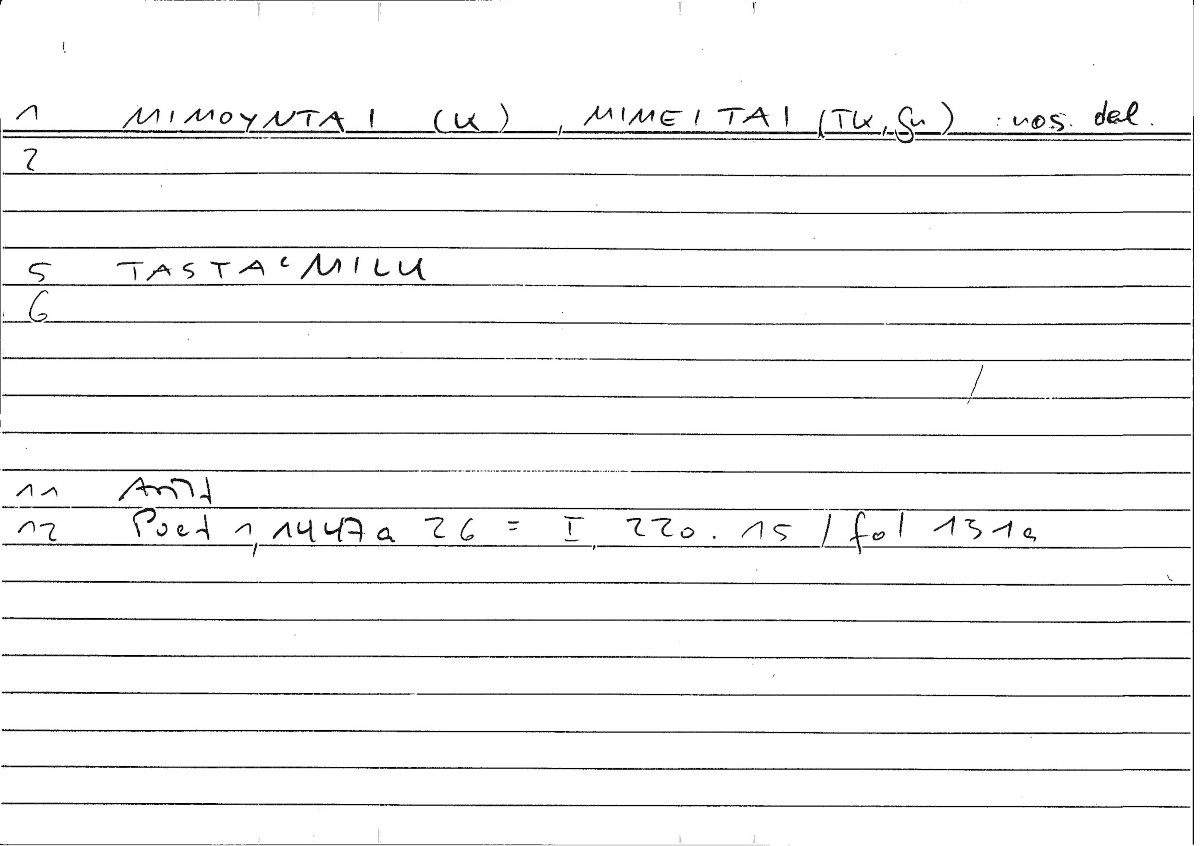 1 MIMOYNTAI (K), MIMEITAI (TK, Gu) : nos. del.
2
5 TASTAʿMILU
6
11 Arist
12 Poet 1, 1447a 26 = I, 220. 15 / fol 131a